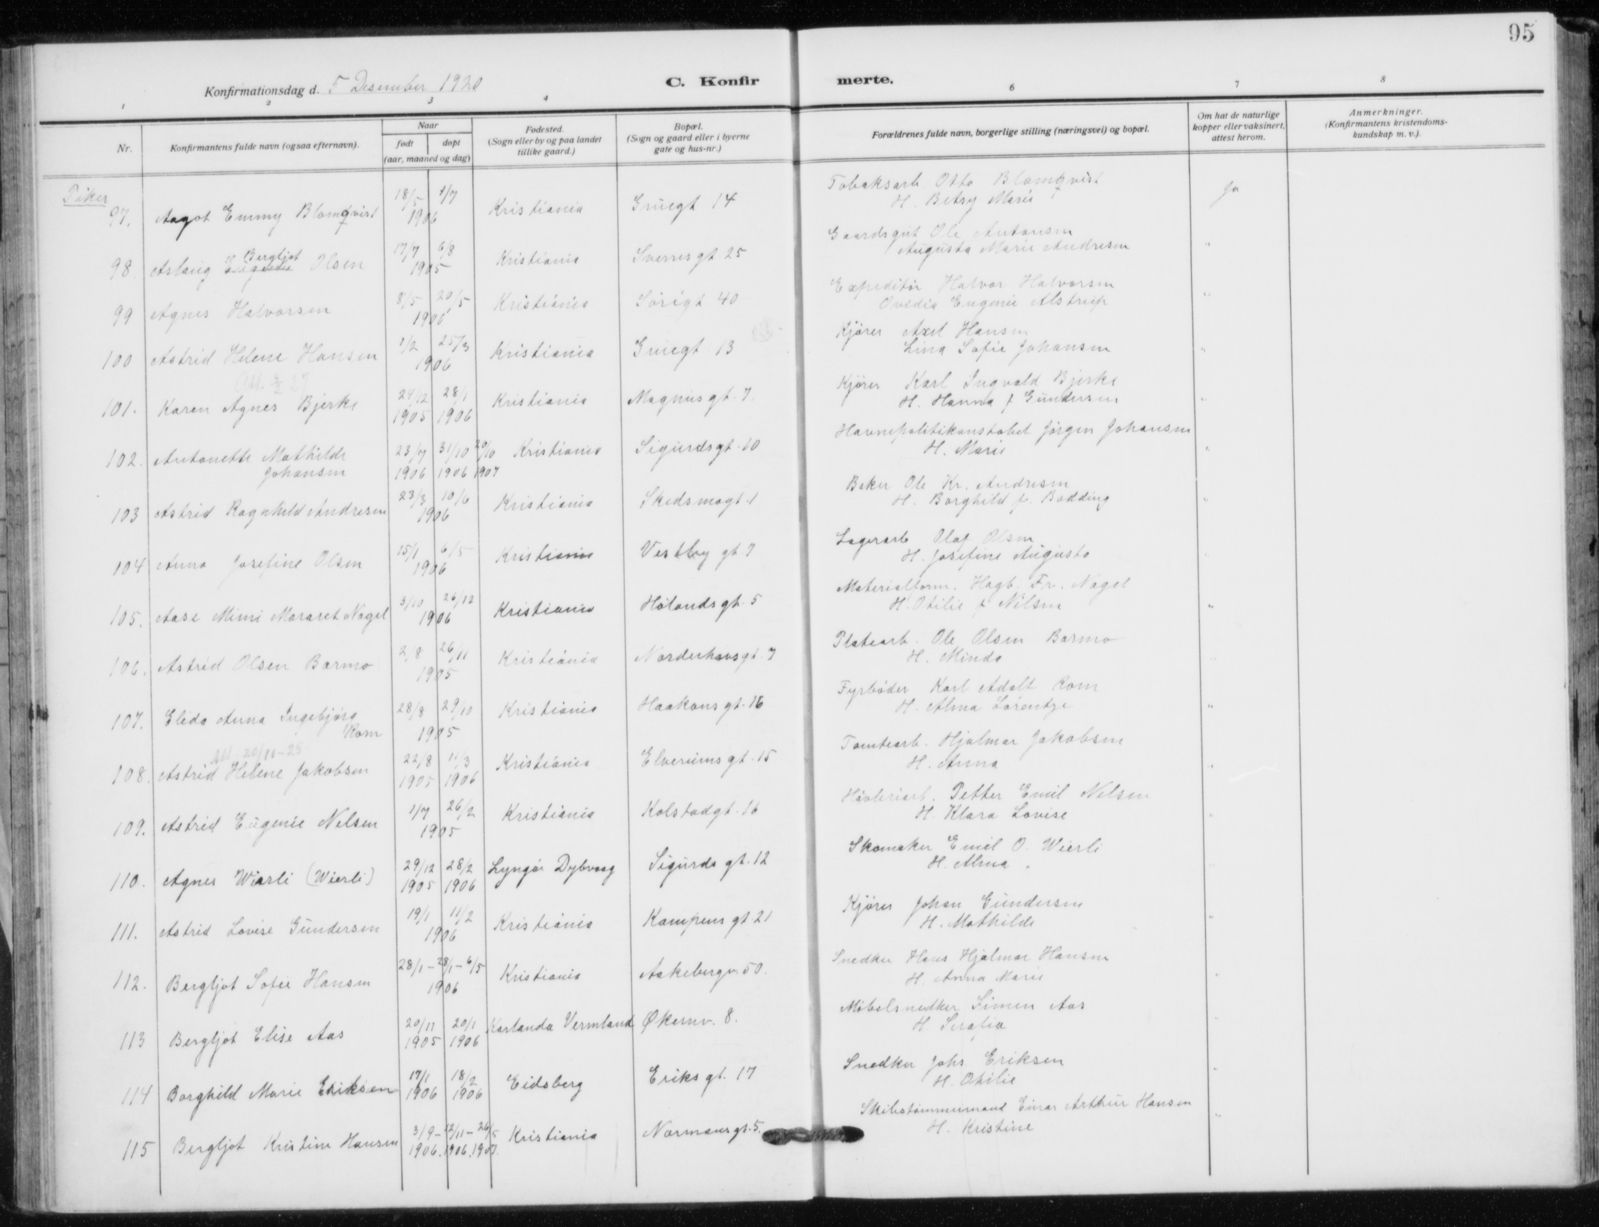 95
Konfirmationsdag d. 5 Desember 1920
C. Konfirmerte.
1 2 3 4 6 7 8
Nr.
Konfirmantens fulde navn (ogsaa efternavn).
Naar
født
døpt
(aar, maaned og dag)
Fødested.
(Sogn eller by og paa landet
tillike gaard.)
Bopæl.
(Sogn og gaard eller i byerne
gate og hus-nr.)
Forældrenes fulde navn, borgerlige stilling (næringsvei) og bopæl.
Om hat de naturlige
kopper eller vaksinert,
attest herom.
Anmerkninger.
(Konfirmantens kristendoms-
kundskap m. v.).
Piker
97. Aagot Emmy Blomqvist 18/5 1/7 1906 Kristiania Gruegt 14 Tobaksarb Otto Blomqvist Ja
H. Betsy Marie
98 Aslaug Bergljot Olsen 17/7 6/8 1905 Kristiania Sverresgt. 25 Gaardsgut Ole Antonsen "
Augusta Marie Andresen
99 Agnes Halvorsen 8/5 20/5 1906 Kristiania Sörligt 40 Expeditör Halvor Halvorsen "
Ovedia Eugenie Alstrup
100 Astrid Helene Hansen 1/2 25/3 1906 Kristiania Gruegt 13 Kjører Axel Hansen "
Lina Sofie Johansen
101. Karen Agnes Bjerke 24/12 1905 28/1 1906 Kristiania Magnusgt. 7. Kjører Karl Ingvald Bjerke "
H. Hanna f Gundersen
102. Antonette Mathilde Johansen 23/7 1906 31/10 1906 20/10 1907 Kristiania Sigurdsgt. 10 Havnepolitikonstabel Jörgen Johansen "
H. Marie
103 Astrid Ragnhild Andresen 23/3 10/6 1906 Kristiania Skedsmogt. 1 Baker Ole Kr. Andresen "
H. Borghild f. Bødding
104 Anna Josefine Olsen 15/1 6/5 1906 Kristiania Vestbygt. 7 Lagerarb Olaf Olsen "
H. Josefine Augusta
105. Aase Mimi Mararet Nagel 3/10 26/12 1906 Kristiania Hølandsgt. 5 Materialform. Hagb. Fr. Nagel "
H. Otilie f Nilsen
106. Astrid Olsen Barmo 2/8 26/11 1905 Kristiania Norderhovsgt. 7 Platearb. Ole Olsen Barmo
H. Minda
107. Elida Anna Ingebjørg Rom 28/8 29/10 1905 Kristiania Haakonsgt. 16 Fyrbøder Karl Adolf Rom "
H. Alma Lorentze
108. Astrid Helene Jakobsen 22/8 1905 11/3 1906 Kristiania Elverumsgt. 15 Tomtearb. Hjalmar Jakobsen
H. Anna
109. Astrid Eugenie Nelsen 1/7 26/2 1905 Kristiania Kolstadgt. 16 Høvleriarb. Petter Emil Nelsen
H. Klara Lovise
110. Agnes Wierli (Wierli) 29/12 1905 28/2 1906 Lyngør Dybvaag Sigurdsgt. 12 Skomaker Emil O. Wierli
H. Alma
111. Astrid Lovise Gundersen 19/1 11/2 1906 Kristiania Kampensgt 21 Kjører Johan Gundersen "
H. Mathilde
112. Bergljot Sofie Hansen 28/1 - 28/1 - 6/5 1906 Kristiania Aakebergv. 50. Snedker Hans Hjalmar Hansen
H. Anna Marie
113 Bergljot Elise Aas 20/11 1905 20/1 1906 Karlanda Vermland Økernv. 8. Møbelsnedker Simen Aas
H. Serafia
114 Borghild Marie Eriksen 17/1 1906 18/2 1906 Eidsberg Eriksgt. 17 Snedker Johs Eriksen
H. Otilie
115 Bergljot Kristine Hansen 3/9 - 1906. 1906. 1907. Kristiania Normansgt. 5. Skibstømmermand Einar Arthur Hansen
H. Kristine